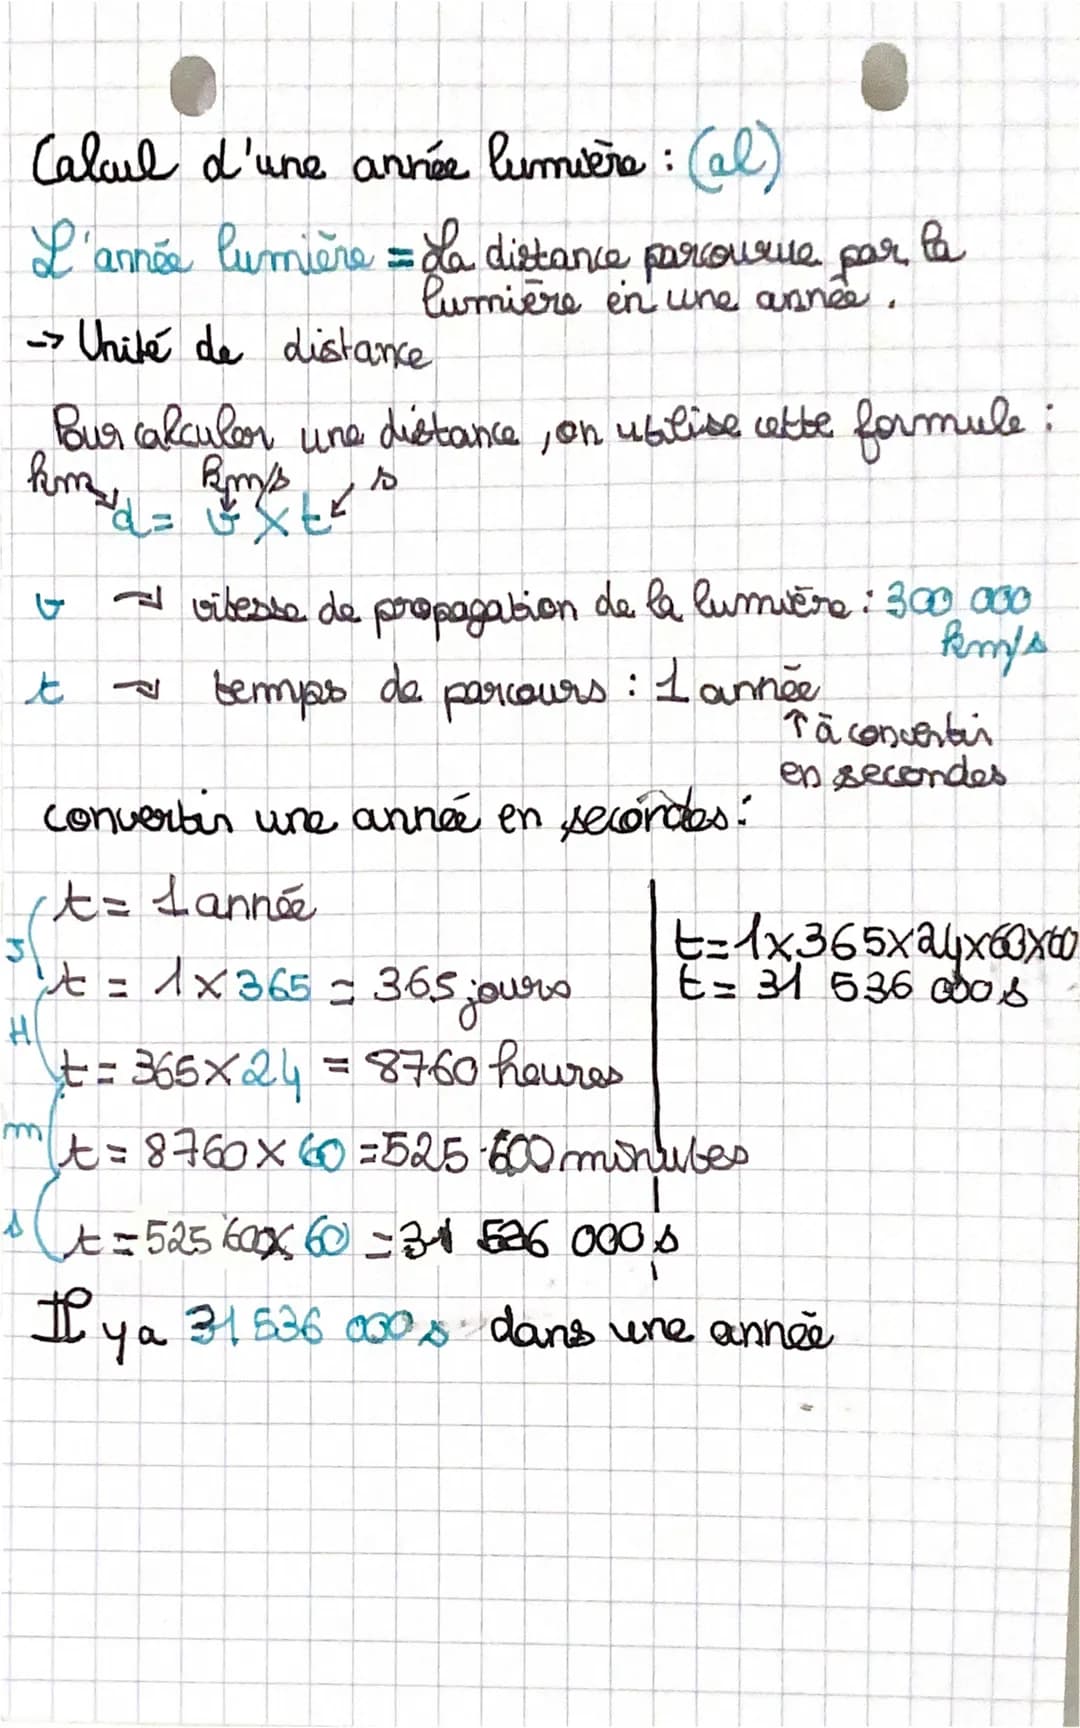 Calcul d'une année lumière : (al)
L'année lumière = La distance parcourue par la
lumière en une année.
-> Unité de distance
Pour calculer une distance, on utilise cette formule :
km km/s s
d = v x t
v → vitesse de propagation de la lumière : 300 000
km/s
t → temps de parcours : 1 année
↑ à convertir
en secondes
convertir une année en secondes :
t = 1 année
J
t = 1 x 365 = 365 jours
H
t = 365 x 24 = 8760 heures
m
t = 8760 x 60 = 525 600 minutes
s
t = 525 600 x 60 = 31 536 000 s
t = 1x365x24x60x60
t = 31 536 000 s
Il y a 31 536 000 s dans une année